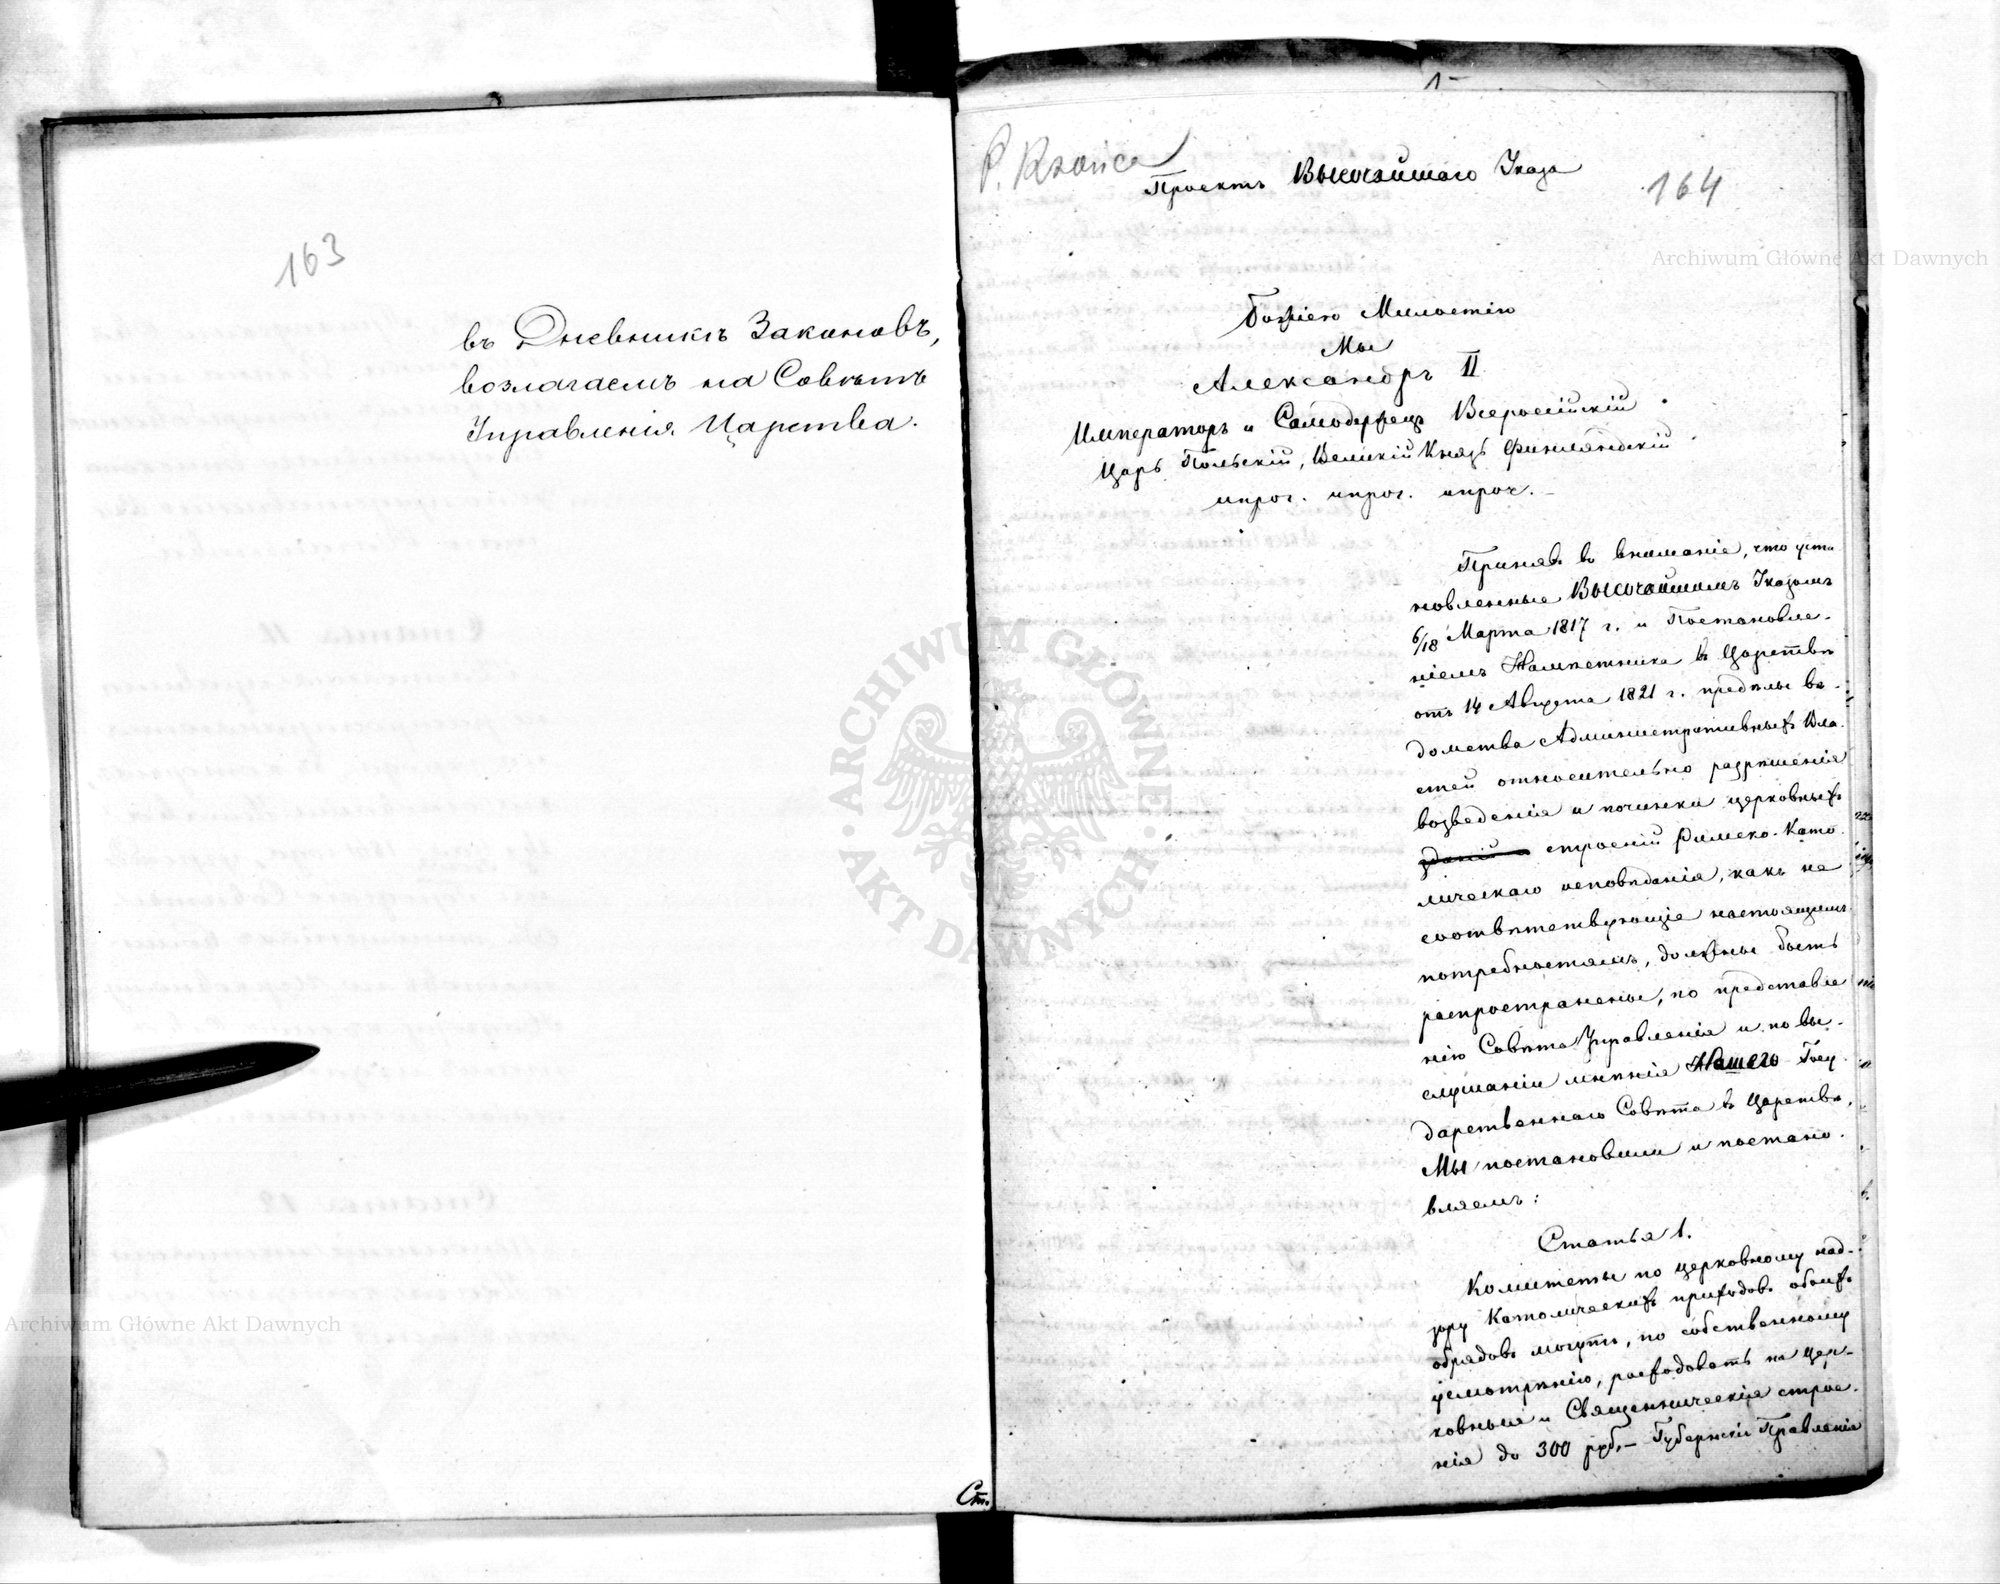 163
въ Дневникѣ Законовъ,
возлагаемъ на Совѣтъ
Управленія Царства.
Ст.
1
164
Проектъ Высочайшаго Указа
Божіею Милостію
Мы
Александръ II
Императоръ и Самодержецъ Всероссійскій
Царь Польскій, Великій Князь Финляндскій
и проч. и проч. и проч.
Принявъ во вниманіе, что уста
новленные Высочайшимъ Указомъ
6/18 Марта 1817 г. и Постановле-
ніемъ Намѣстника въ Царствѣ
отъ 14 Августа 1821 г. предѣлы вѣ-
домства Административныхъ Вла-
стей относительно разрѣшенія
возведенія и починки церковныхъ
зданій строеній Римско-Като-
лическаго исповѣданія, какъ не
соотвѣтствующіе настоящимъ
потребностямъ, должны быть
распространены, по представле
нію Совѣта Управленія и по вы-
слушаніи мнѣнія Нашего Госу-
дарственнаго Совѣта въ Царствѣ,
Мы постановили и постано-
вляемъ:
Статья 1.
Комитеты по церковному над-
зору Католическихъ приходовъ обоихъ
обрядовъ могутъ, по собственному
усмотрѣнію, расходовать на цер-
ковныя и Священническія строе-
нія до 300 руб.— Губернскія Правленія
Archiwum Główne Akt Dawnych
ARCHIWUM GŁÓWNE
AKT DAWNYCH
Archiwum Główne Akt Dawnych